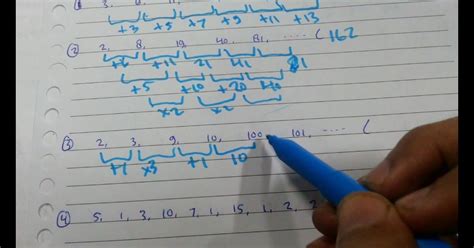 +3 +5 +7 +9 +11 +13
② 2, 8, 19, 40, 81, ..... ( 162
+6 +11 21 41 81
+5 +10 +20 +40
×2 ×2
③ 2, 3, 9, 10, 100, 101, ..... (
+1 ×3 +1 10
④ 5, 1, 3, 10, 7, 1, 15, 1, 2, 2